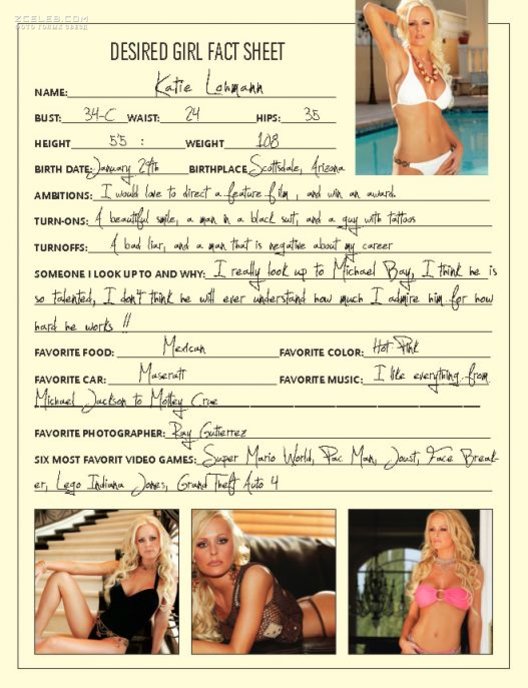 ZCELEB.COM
ФОТО ГОЛЫХ ЗВЕЗД
DESIRED GIRL FACT SHEET
NAME: Katie Lohmann
BUST: 34-C WAIST: 24 HIPS: 35
HEIGHT 5'5 : WEIGHT 108
BIRTH DATE: January 29th BIRTHPLACE Scottsdale, Arizona
AMBITIONS: I would love to direct a feature film, and win an award.
TURN-ONS: A beautiful smile, a man in a black suit, and a guy with tattoos
TURNOFFS: A bad liar, and a man that is negative about my career
SOMEONE I LOOK UP TO AND WHY: I really look up to Michael Bay, I think he is
so talented, I don't think he will ever understand how much I admire him for how
hard he works !!
FAVORITE FOOD: Mexican FAVORITE COLOR: Hot Pink
FAVORITE CAR: Maserati FAVORITE MUSIC: I like everything from
Michael Jackson to Motley Crue
FAVORITE PHOTOGRAPHER: Ray Gutierrez
SIX MOST FAVORIT VIDEO GAMES: Super Mario World, Pac Man, Joust, Face Break-
er, Lego Indiana Jones, Grand Theft Auto 4